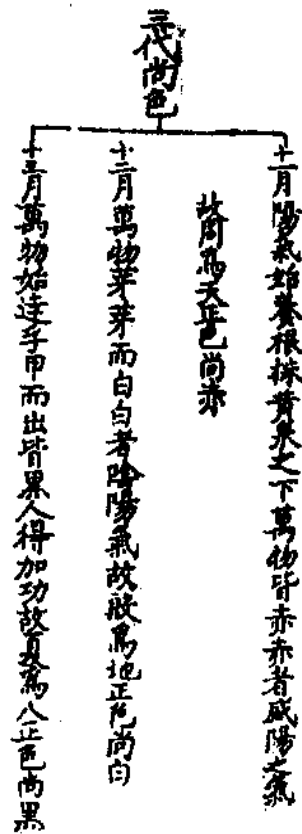 三代尚色
十一月陽氣始養根株黃泉之下萬物皆赤赤者盛陽之氣
故周為天正色尚赤
十二月萬物芽芽而白白者陰陽氣故殷為地正色尚白
十三月萬物始達孚甲而出皆黑人得加功故夏為人正色尚黑